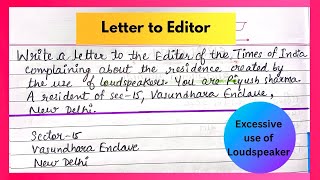 Letter to Editor
Write a letter to the Editor of the Times of India
complaining about the residence created by
the use of loudspeakers. You are Piyush sharma.
A resident of sec-15, Vasundhara Enclave,
New Delhi.
Excessive
use of
Loudspeaker
Sector-15
Vasundhara Enclave
New Delhi